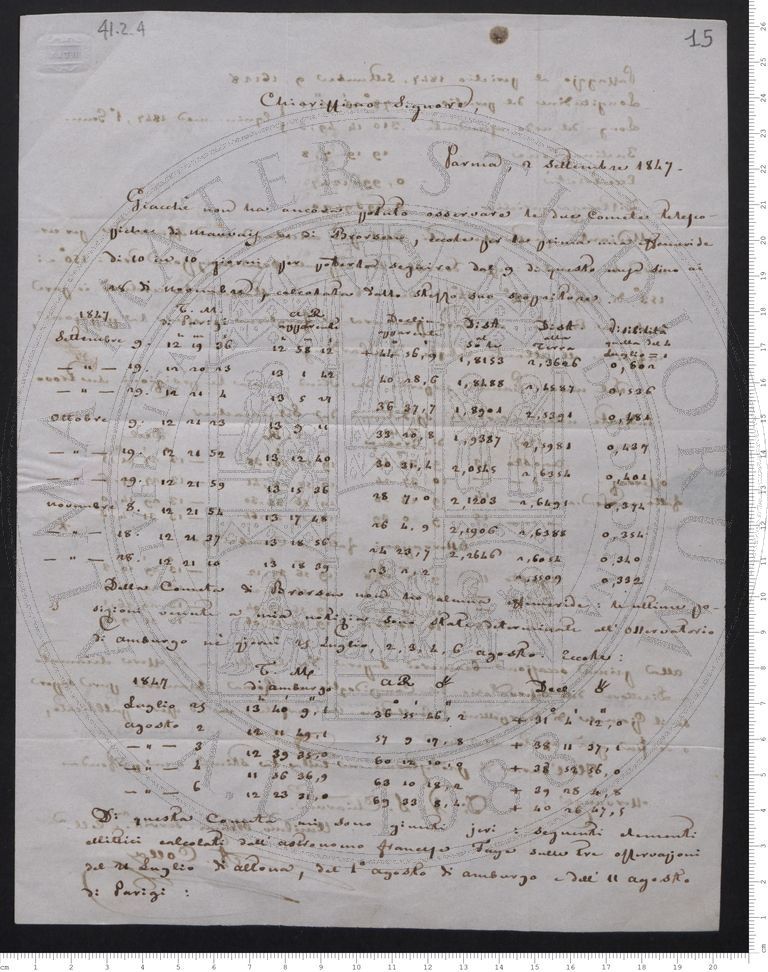 41.2.4
15
Chiarissimo Signore,
Parma, 2 Settembre 1847.
Giacchè non hai ancora potuto osservare le due Comete telesco-
piche di Mauvais e di Brorsen, eccole per la prima una effemeride
di 10 in 10 giorni per poterla seguire dal 9 di questo mese sino ai
28 di Novembre, calcolata dallo stesso suo scopritore.
1847 T. M. di Parigi AR. apparente Declin. apparente Dist. al Sole Dist. alla Terra Visibilità quella del 4 Luglio = 1
Settembre 9. 12 19 36 12 58 12 +44 56,9 1,8153 2,3626 0,602
— " — 19. 12 20 23 13 1 42 40 28,6 1,8488 2,4587 0,536
— " — 29. 12 21 4 13 5 27 36 37,7 1,8901 2,5391 0,481
Ottobre 9. 12 21 23 13 9 11 33 20,8 1,9387 2,5981 0,437
— " — 19. 12 21 52 13 12 40 30 31,4 2,0545 2,6354 0,401
— " — 29. 12 21 59 13 15 36 28 7,0 2,1203 2,6491 0,374
Novembre 8. 12 21 54 13 17 48 26 4,9 2,1906 2,6388 0,354
— " — 18. 12 21 37 13 18 56 24 23,7 2,2646 2,6054 0,340
— " — 28. 12 21 10 13 18 39 23 2,2 2,5509 0,332
Della Cometa di Brorsen non ho alcuna effemeride: le ultime po-
sizioni venute a mia notizia sono state determinate all'Osservatorio
di Amburgo ne' giorni 25 Luglio, 2, 3, 4, 6 agosto. Eccole:
1847 T. M. di Amburgo AR. Decl.
Luglio 25 13 40 9,1 36 55 26,2 + 31 4 12,0
Agosto 2 12 11 49,1 57 9 17,8 + 38 11 37,1
— " — 3 12 39 35,0 60 12 10,0 + 38 52 36,0
— " — 4 11 36 36,9 63 10 18,2 + 39 28 4,8
— " — 6 12 23 21,0 69 33 8,4 + 40 26 47,5
Di questa Cometa mi sono giunti jeri i seguenti elementi
ellittici calcolati dall'astronomo francese Faye sulle tre osservazioni
del 21 Luglio di Altona, del 1° agosto di Amburgo e dell'11 agosto
di Parigi: